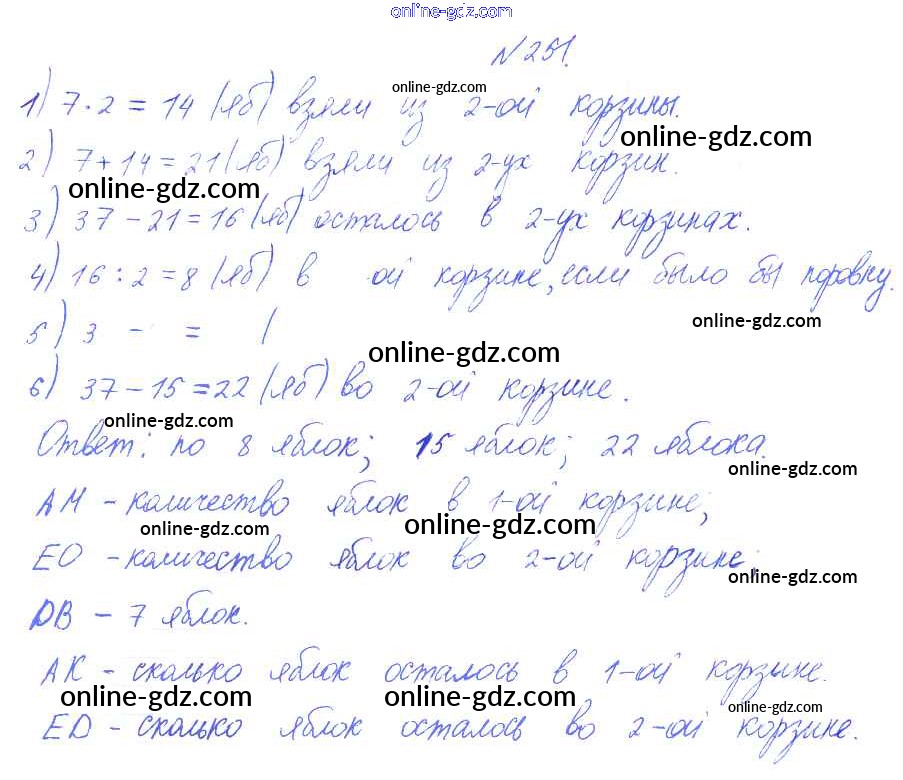 online-gdz.com
№251.
online-gdz.com
1) 7·2=14 (яб) взяли из 2-ой корзины.
online-gdz.com
2) 7+14=21(яб) взяли из 2-ух корзин.
online-gdz.com
3) 37-21=16(яб) осталось в 2-ух корзинах.
4) 16:2=8 (яб) в -ой корзине, если было бы поровну.
online-gdz.com
5) 3 - =
online-gdz.com
6) 37-15=22 (яб) во 2-ой корзине.
online-gdz.com
Ответ: по 8 яблок; 15 яблок; 22 яблока.
online-gdz.com
АМ - количество яблок в 1-ой корзине;
online-gdz.com online-gdz.com
ЕО - количество яблок во 2-ой корзине;
online-gdz.com
DB - 7 яблок.
АК - сколько яблок осталось в 1-ой корзине.
online-gdz.com online-gdz.com online-gdz.com
ED - сколько яблок осталось во 2-ой корзине.